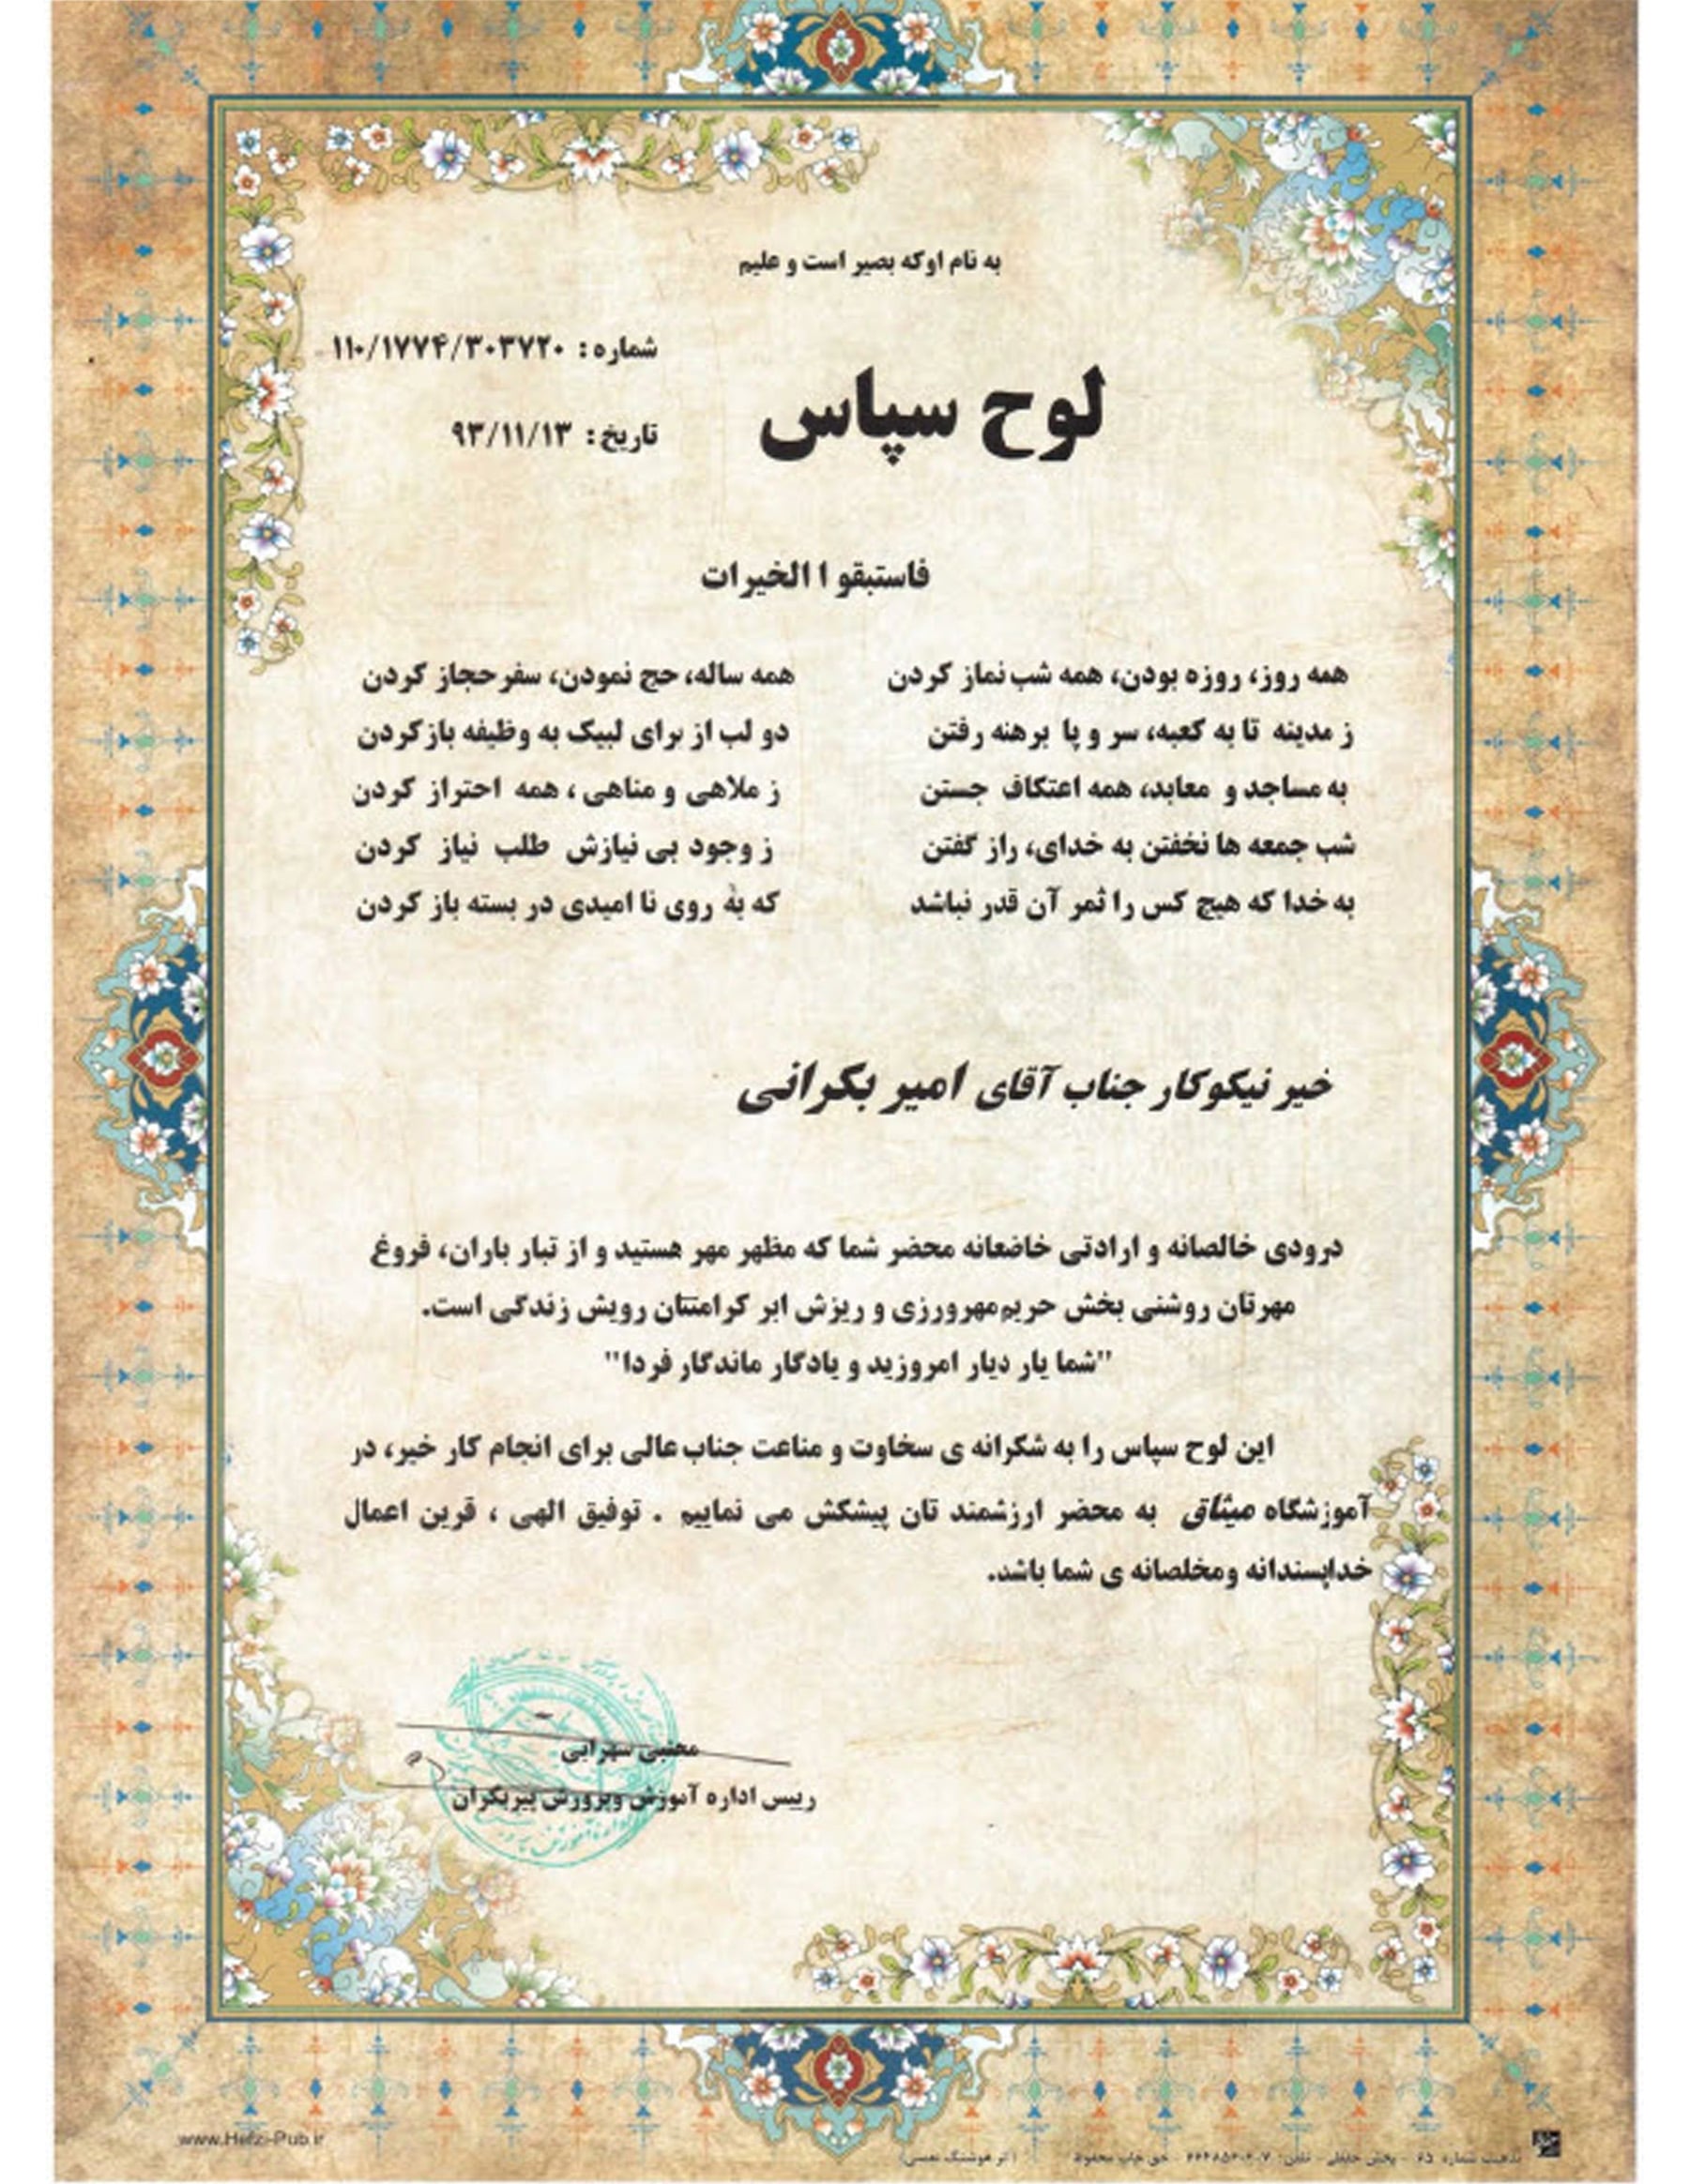 به نام اوکه بصیر است و علیم
شماره : ۱۱۰/۱۷۷۴/۳۰۳۷۲۰
لوح سپاس
تاریخ : ۹۳/۱۱/۱۳
فاستبقو ا الخیرات
همه روز، روزه بودن، همه شب نماز کردن همه ساله، حج نمودن، سفر حجاز کردن
ز مدینه تا به کعبه، سر و پا برهنه رفتن دو لب از برای لبیک به وظیفه باز کردن
به مساجد و معابد، همه اعتکاف جستن ز ملاهی و مناهی ، همه احتراز کردن
شب جمعه ها نخفتن به خدای، راز گفتن ز وجود بی نیازش طلب نیاز کردن
به خدا که هیچ کس را ثمر آن قدر نباشد که به روی نا امیدی در بسته باز کردن
خیر نیکوکار جناب آقای امیر بکرانی
درودی خالصانه و ارادتی خاضعانه محضر شما که مظهر مهر هستید و از تبار باران، فروغ
مهرتان روشنی بخش حریم مهرورزی و ریزش ابر کرامتتان رویش زندگی است.
"شما یار دیار امروزید و یادگار ماندگار فردا"
این لوح سپاس را به شکرانه ی سخاوت و مناعت جناب عالی برای انجام کار خیر، در
آموزشگاه میثاق به محضر ارزشمند تان پیشکش می نماییم . توفیق الهی ، قرین اعمال
خداپسندانه ومخلصانه ی شما باشد.
مجتبی سهرابی
رییس اداره آموزش وپرورش پیربکران
www.Hefzi-Pub.ir